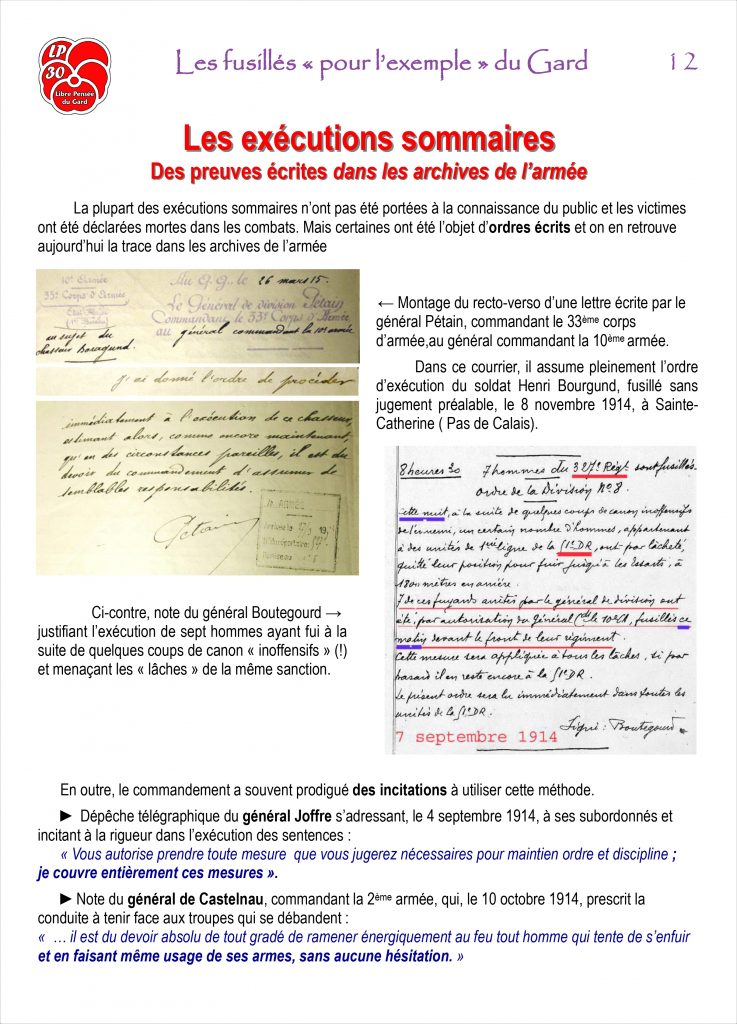 LP
30
Libre Pensée
du Gard
Les fusillés « pour l'exemple » du Gard
12
Les exécutions sommaires
Des preuves écrites dans les archives de l'armée
La plupart des exécutions sommaires n'ont pas été portées à la connaissance du public et les victimes
ont été déclarées mortes dans les combats. Mais certaines ont été l'objet d'ordres écrits et on en retrouve
aujourd'hui la trace dans les archives de l'armée
10e Armée
33e Corps d'Armée
Etat-Major
(1er Bureau)
au sujet du
chasseur Bourgund.
Au Q.G., le 26 mars 15.
Le Général de division Pétain
Commandant le 33e Corps d'Armée
au général commandant la 10e armée
J'ai donné l'ordre de procéder
immédiatement à l'exécution de ce chasseur,
estimant alors, comme encore maintenant,
qu'en des circonstances pareilles, il est du
devoir du commandement d'assumer de
semblables responsabilités.
Pétain
ARMÉE
← Montage du recto-verso d'une lettre écrite par le
général Pétain, commandant le 33ème corps
d'armée,au général commandant la 10ème armée.
Dans ce courrier, il assume pleinement l'ordre
d'exécution du soldat Henri Bourgund, fusillé sans
jugement préalable, le 8 novembre 1914, à Sainte-
Catherine ( Pas de Calais).
8 heures 30 7 hommes du 327e Régt sont fusillés.
Ordre de la Division No 8.
Cette nuit, à la suite de quelques coups de canon inoffensifs
de l'ennemi, un certain nombre d'hommes, appartenant
à des unités de 1ère ligne de la 51e DR, ont par lâcheté,
quitté leur position pour fuir jusqu'à les Essarts, à
1800 mètres en arrière.
7 de ces fuyards arrêtés par le général de division ont
été, par autorisation du Général Ct le 10e CA, fusillés ce
matin devant le front de leur régiment.
Cette mesure sera appliquée à tous les lâches, si par
hasard il en reste encore à la 51e DR.
Le présent ordre sera lu immédiatement dans toutes les
unités de la 51e DR.
Signé : Boutegourd
7 septembre 1914
Ci-contre, note du général Boutegourd →
justifiant l'exécution de sept hommes ayant fui à la
suite de quelques coups de canon « inoffensifs » (!)
et menaçant les « lâches » de la même sanction.
En outre, le commandement a souvent prodigué des incitations à utiliser cette méthode.
► Dépêche télégraphique du général Joffre s'adressant, le 4 septembre 1914, à ses subordonnés et
incitant à la rigueur dans l'exécution des sentences :
« Vous autorise prendre toute mesure que vous jugerez nécessaires pour maintien ordre et discipline ;
je couvre entièrement ces mesures ».
►Note du général de Castelnau, commandant la 2ème armée, qui, le 10 octobre 1914, prescrit la
conduite à tenir face aux troupes qui se débandent :
« … il est du devoir absolu de tout gradé de ramener énergiquement au feu tout homme qui tente de s'enfuir
et en faisant même usage de ses armes, sans aucune hésitation. »